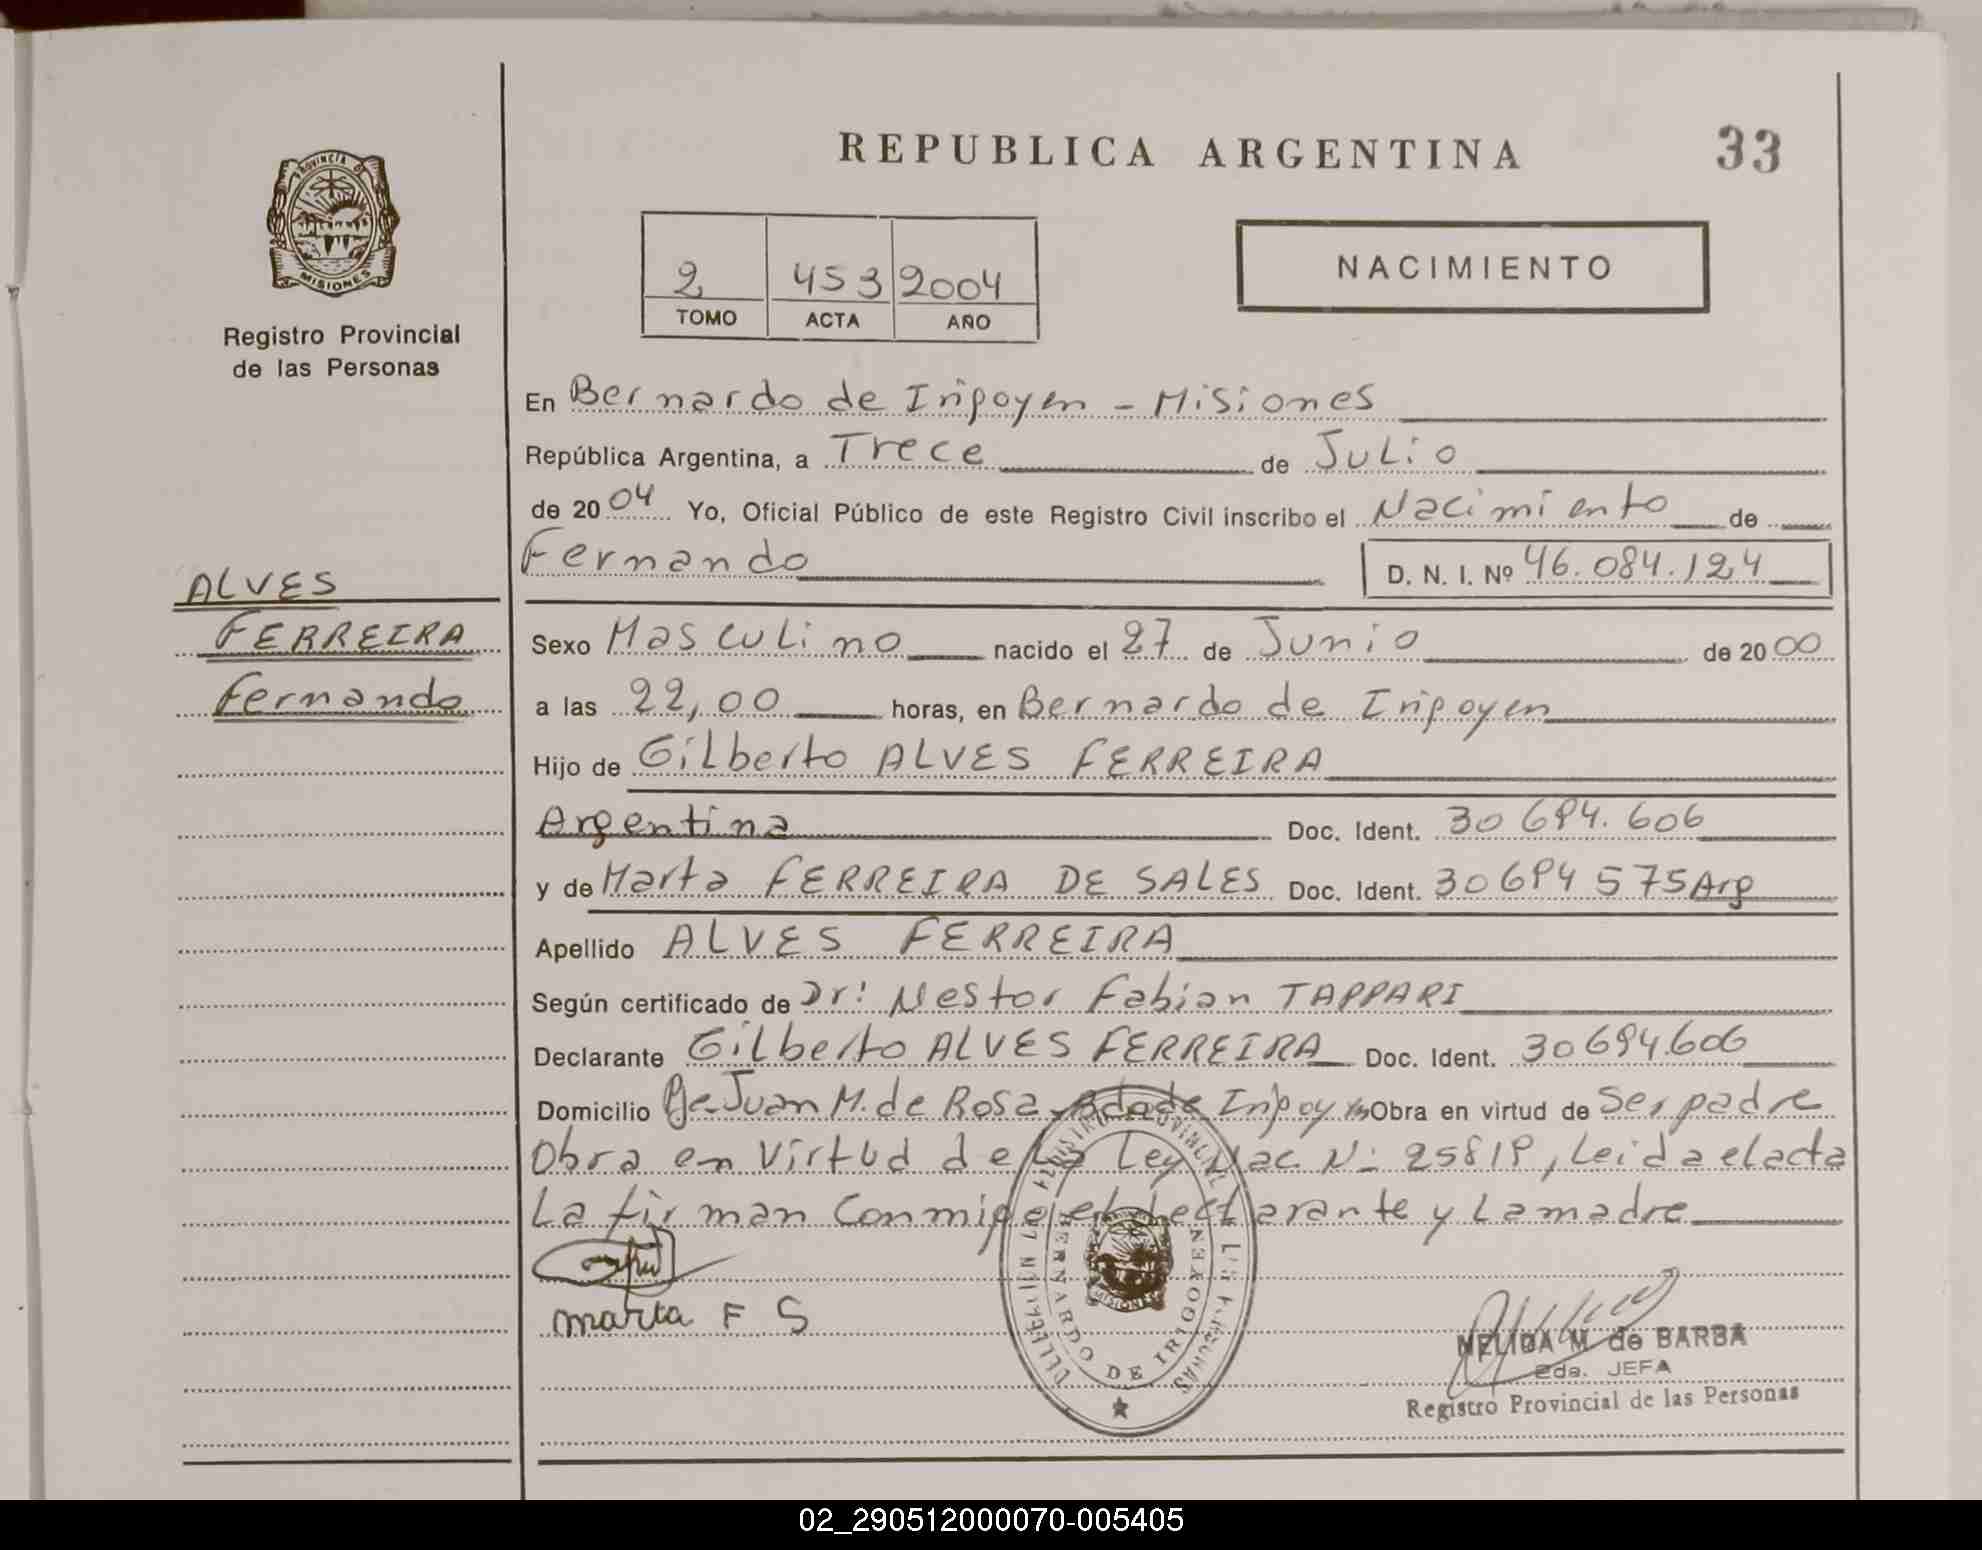 REPUBLICA ARGENTINA
33
PROVINCIA DE
MISIONES
Registro Provincial
de las Personas
2 453 2004
TOMO ACTA AÑO
NACIMIENTO
En Bernardo de Irigoyen - Misiones
República Argentina, a Trece de Julio
de 2004 Yo, Oficial Público de este Registro Civil inscribo el Nacimiento de
Fernando D. N. I. Nº 46.084.124
ALVES
FERREIRA
Fernando
Sexo Masculino nacido el 27 de Junio de 2000
a las 22,00 horas, en Bernardo de Irigoyen
Hijo de Gilberto ALVES FERREIRA
Argentina Doc. Ident. 30 694.606
y de Marta FERREIRA DE SALES Doc. Ident. 30694575 Arg
Apellido ALVES FERREIRA
Según certificado de Dr: Nestor Fabian TAPPARI
Declarante Gilberto ALVES FERREIRA Doc. Ident. 30694.606
Domicilio Juan M. de Rosa Bdo de Irigoyen Obra en virtud de Ser padre
Obra en virtud de La Ley Nac Nº 25819, Leida el acta
La firman Conmigo el declarante y La madre
marta F S
BERNARDO DE IRIGOYEN
MISIONES
NELIDA M. de BARBA
2da. JEFA
Registro Provincial de las Personas
02_290512000070-005405